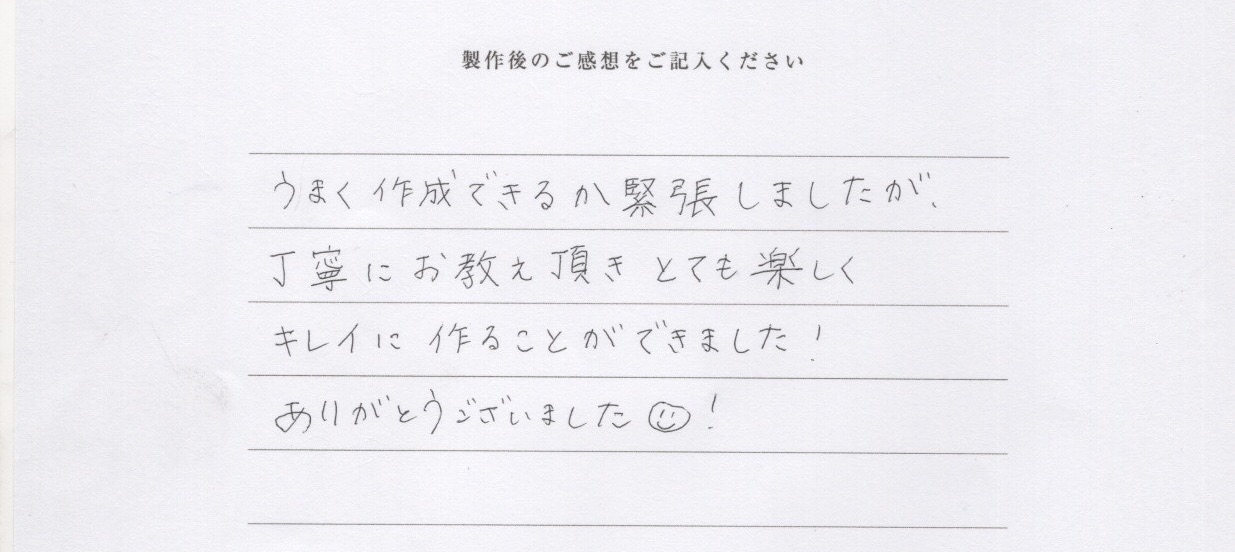 製作後のご感想をご記入ください
うまく作成できるか緊張しましたが、
丁寧にお教え頂きとても楽しく
キレイに作ることができました!
ありがとうございました☺!